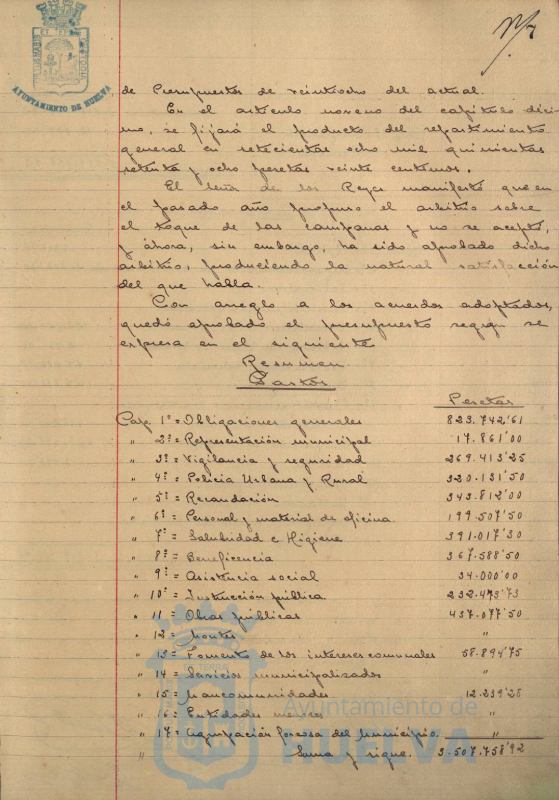 AYUNTAMIENTO DE HUELVA
de Presupuestos de veintiocho del actual.
En el artículo noveno del capítulo déci-
mo, se fijará el producto del repartimiento
general en setecientas ocho mil quinientas
setenta y ocho pesetas veinte centimos.
El señor de los Reyes manifestó que en
el pasado año propuso el arbitrio sobre
el toque de las campanas y no se aceptó,
y ahora, sin embargo, ha sido aprobado dicho
arbitrio, produciendo la natural satisfacción
del que habla.
Con arreglo a los acuerdos adoptados,
quedó aprobado el presupuesto según se
expresa en el siguiente
Resumen
Gastos
Pesetas
Cap. 1º = Obligaciones generales 823.742'61
" 2º = Representación municipal 17.861'00
" 3º = Vigilancia y seguridad 269.413'25
" 4º = Policia Urbana y Rural 320.131'50
" 5º = Recaudación 343.812'00
" 6º = Personal y material de oficina 199.507'50
" 7º = Salubridad e Higiene 391.017'30
" 8º = Beneficencia 367.588'50
" 9º = Asistencia social 34.000'00
" 10º = Instrucción pública 232.473'73
" 11 = Obras públicas 437.077'50
" 12 = Montes "
" 13 = Fomento de los intereses comunales 58.894'75
" 14 = Servicios municipalizados "
" 15 = Mancomunidades 12.239'28
" 16 = Entidades menores "
" 17 = Agrupación forzosa del Municipio. "
" Suma y sigue. 3.507.758'92
Ayuntamiento de
HUELVA